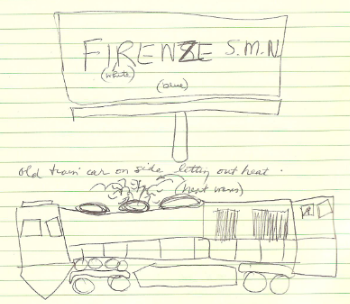 FIRENZE S.M.N.
(white)
(blue)
old train car on side letting out heat.
(heat waves)